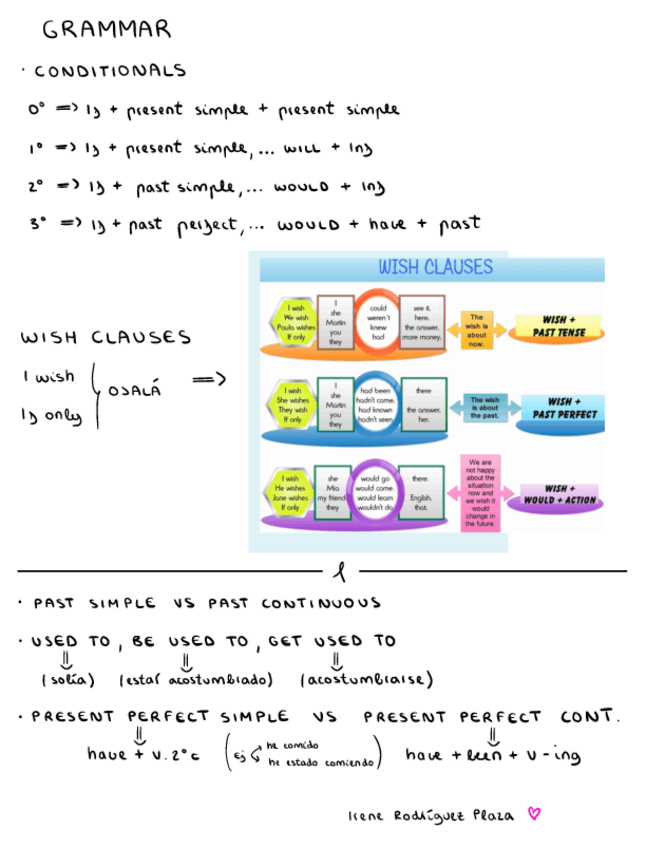 GRAMMAR
· CONDITIONALS
0º => If + present simple + present simple
1º => If + present simple, ... WILL + inf
2º => If + past simple, ... WOULD + inf
3º => If + past perfect, ... WOULD + have + past
WISH CLAUSES
I wish
We wish
Paula wishes
If only
I
she
Martin
you
they
could
weren't
knew
had
see it.
here.
the answer.
more money.
The
wish is
about
now.
WISH +
PAST TENSE
WISH CLAUSES
I wish
If only
OJALÁ =>
I wish
She wishes
They wish
If only
I
she
Martin
you
they
had been
hadn't come.
had known
hadn't seen
there
the answer.
her.
The wish
is about
the past.
WISH +
PAST PERFECT
I wish
He wishes
Jane wishes
If only
she
Mia
my friend
they
would go
would come.
would learn
wouldn't do
there.
English.
that.
We are
not happy
about the
situation
now and
we wish it
would
change in
the future
WISH +
WOULD + ACTION
· PAST SIMPLE VS PAST CONTINUOUS
· USED TO, BE USED TO, GET USED TO
(solía) (estar acostumbrado) (acostumbrarse)
· PRESENT PERFECT SIMPLE VS PRESENT PERFECT CONT.
have + v. 2ºc (ej he comido
he estado comiendo) have + been + v-ing
Irene Rodríguez Plaza ♡